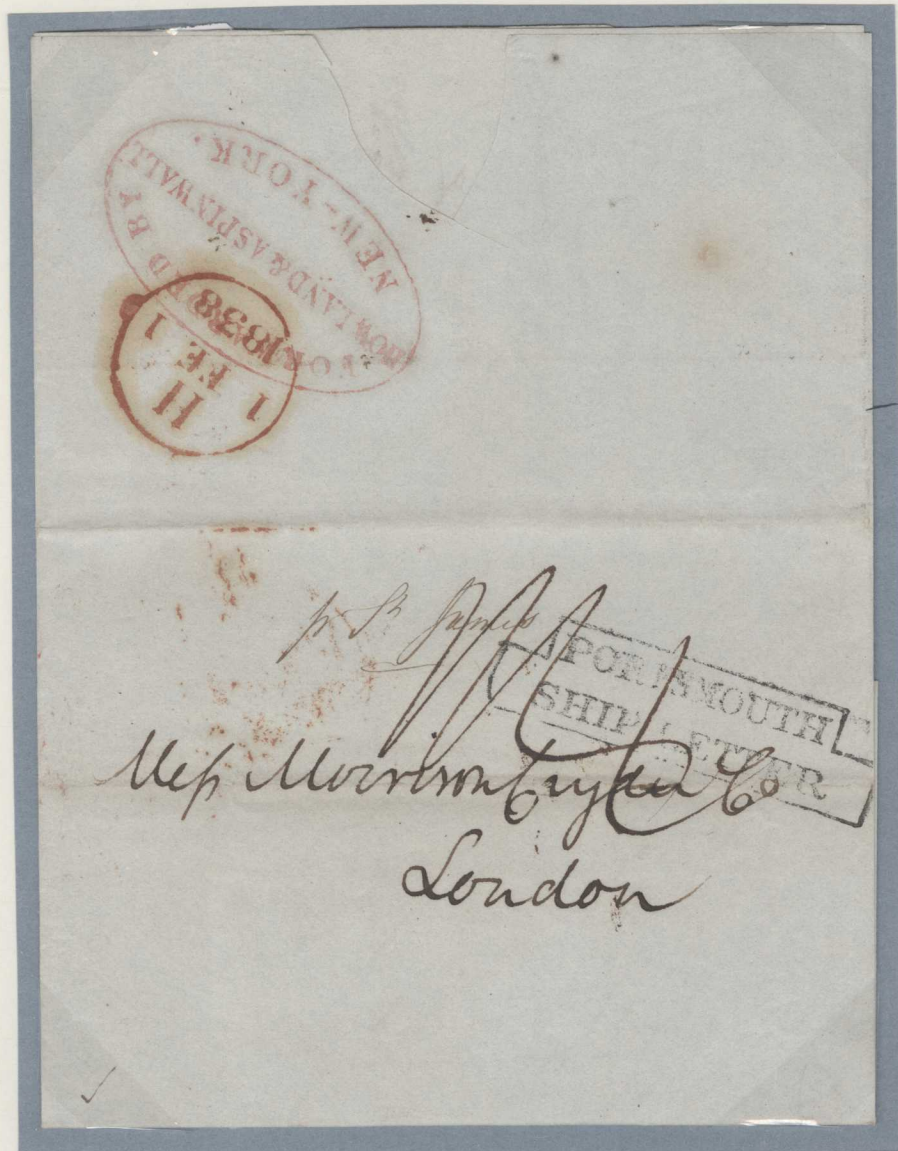 FORWARDED BY
HOWLAND & ASPINWALL
NEW-YORK.
H
1 FE 1
1838
p St James
PORTSMOUTH
SHIP LETTER
Mess Morrison Cryder & Co
London